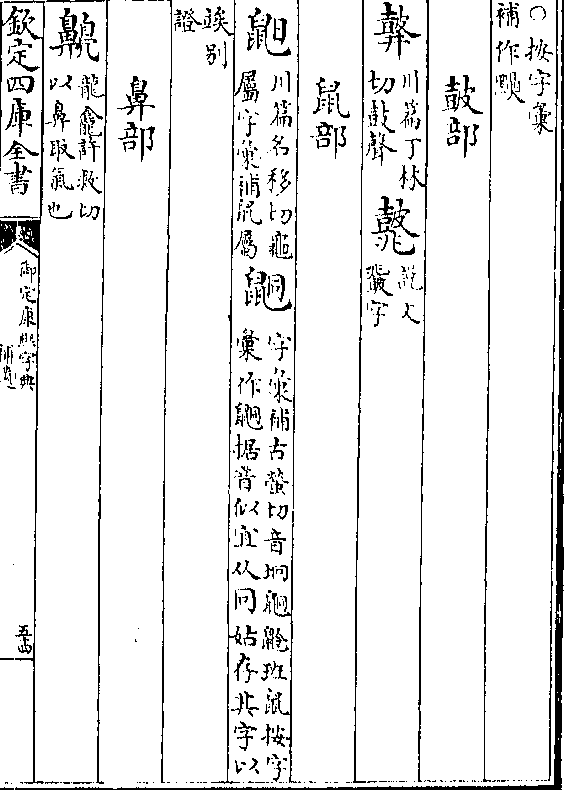 ○按字彙
補作
鼓部
川篇丁林
切鼓聲
說文
鼖字
鼠部
川篇名移切
屬字彙補鼠屬
字彙補古螢切音坰䶐班鼠按字
彙作䶐据音似宜从冋姑存其字以
竢别
證
鼻部
龍龕許救切
以鼻取氣也
欽定四庫全書
御定康熙字典
補遺